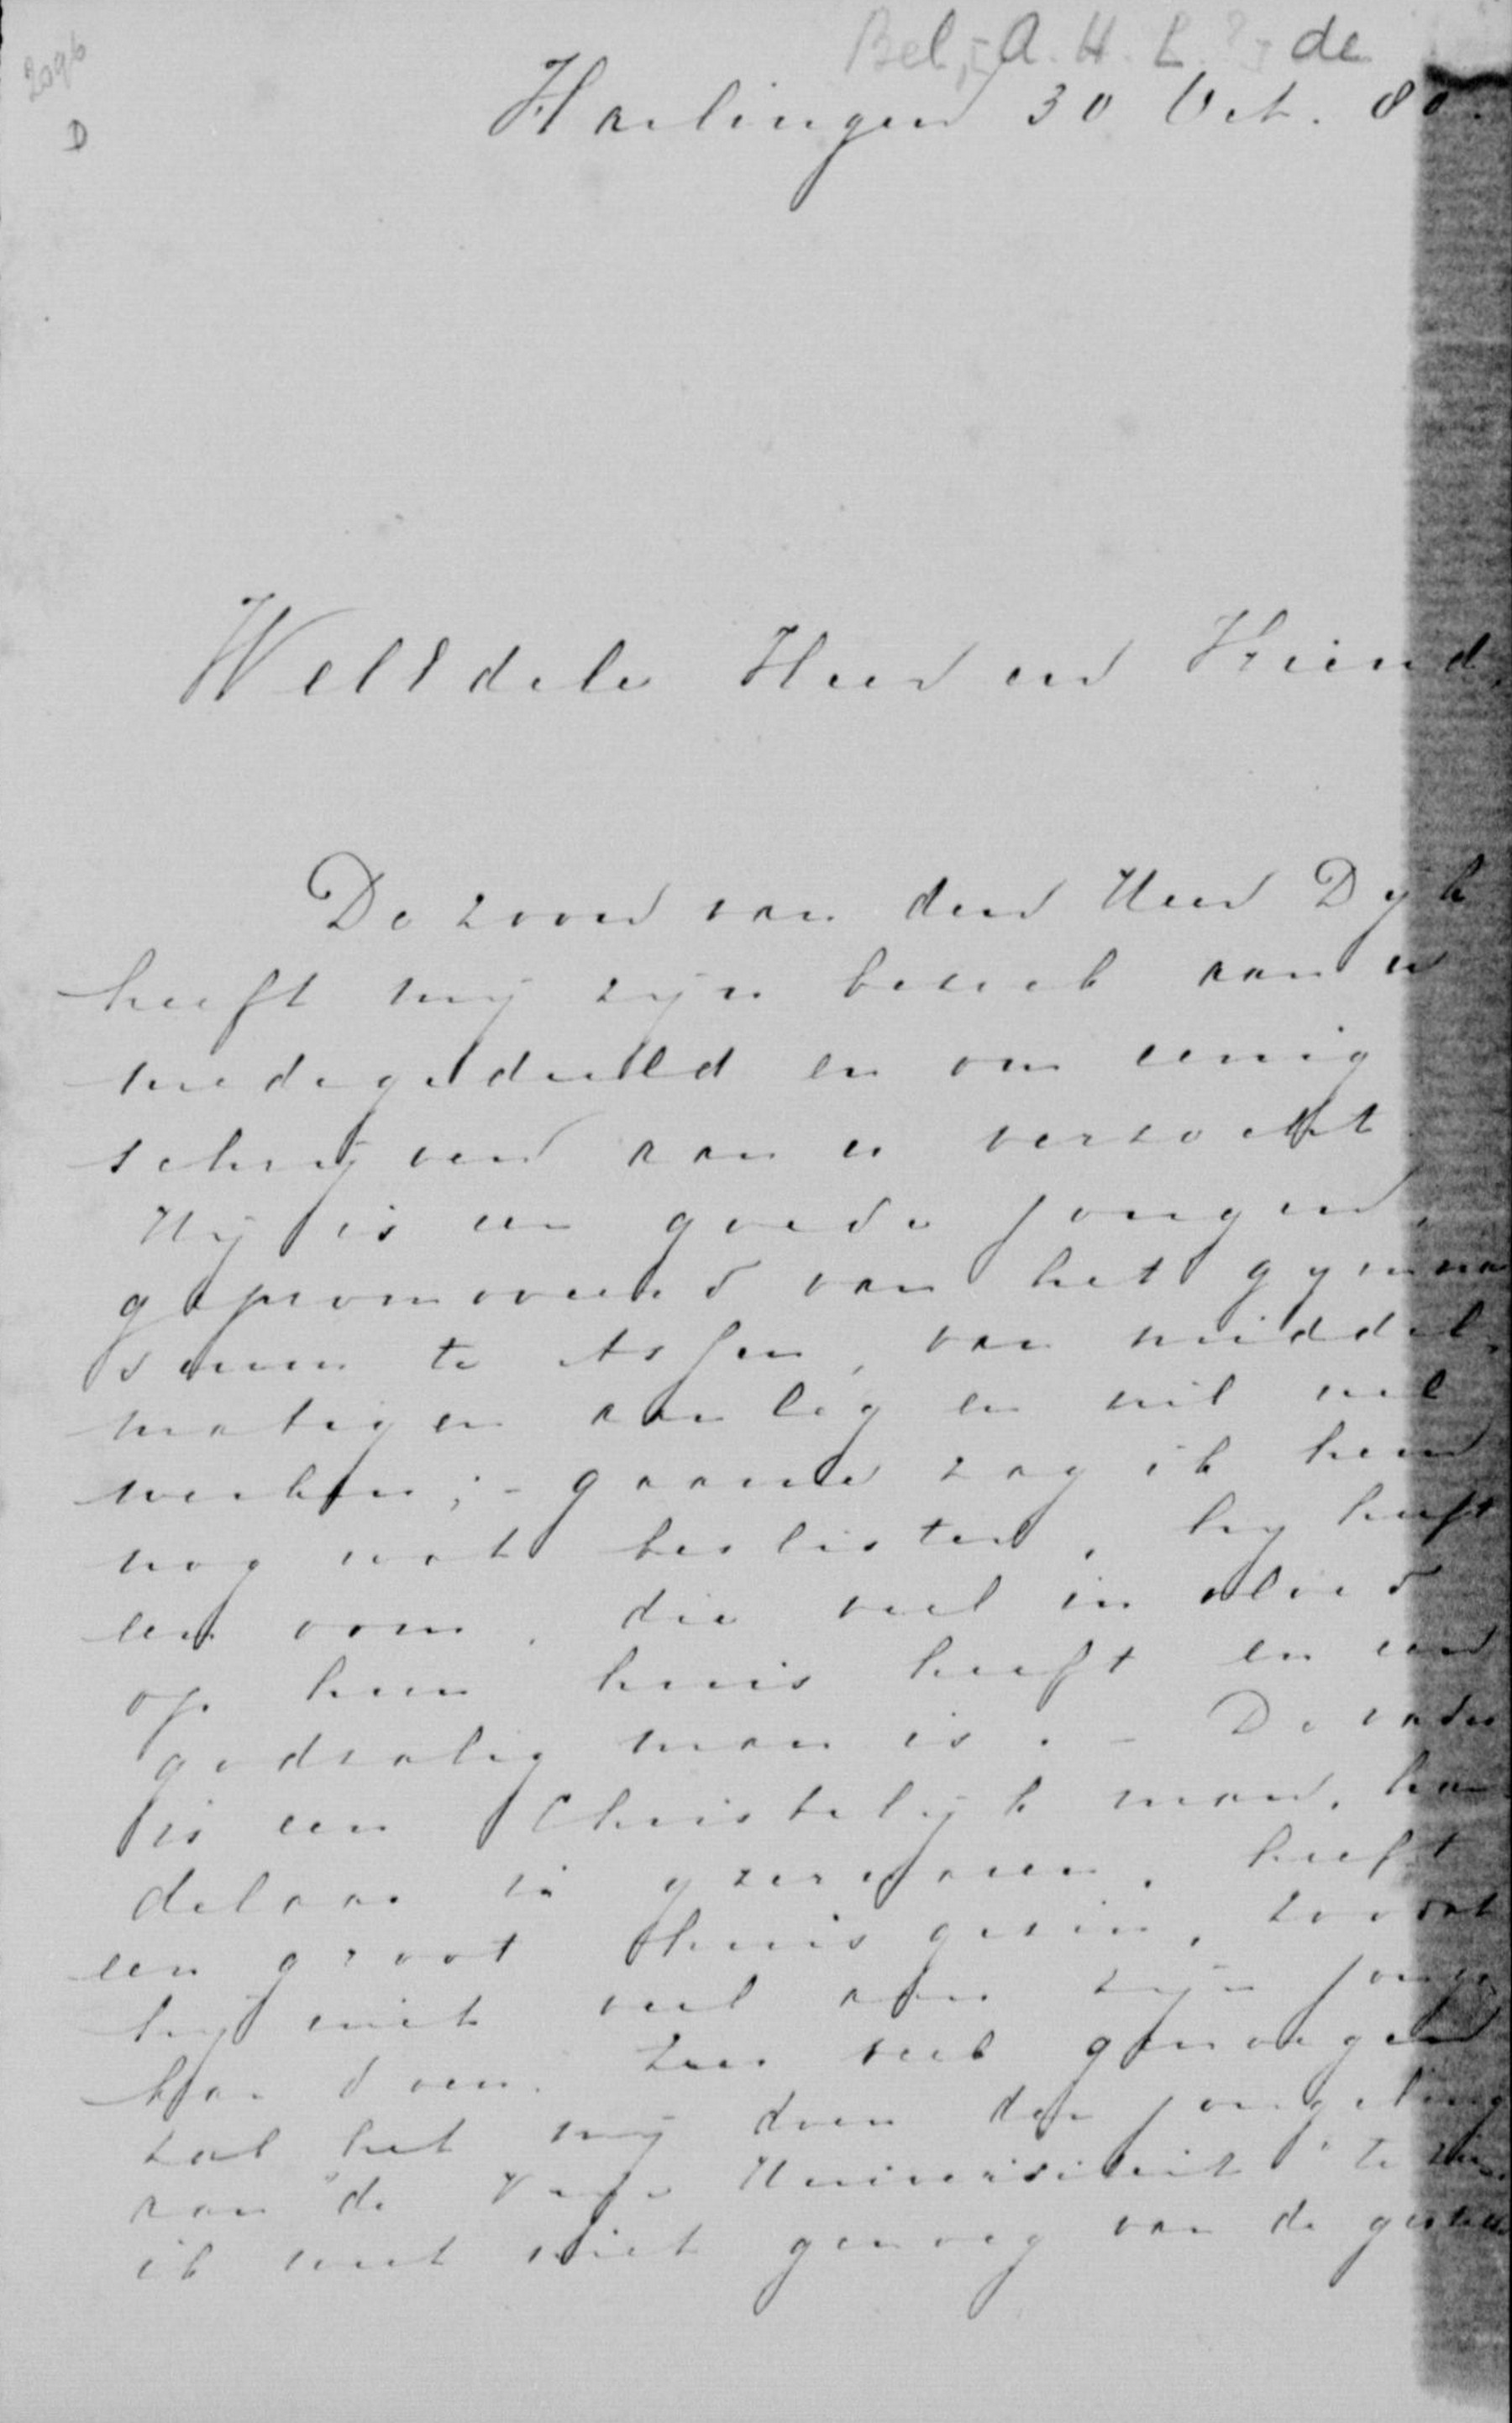 2096
D
Bel, A. H. L. ?, de
Harlingen 30 Oct. 80.
WelEdele Heer en Vriend,
De zoon van den Heer Dyk
heeft mij zijn bezoek aan u
medegedeeld en om eenig
schrijven aan u verzocht.
Hij is een goede jongen,
gepromoveerd van het gymna
sium te Assen, van middel,
matigen aanleg en wil wel
werken; - gaarne zag ik hem
nog wat beslister, hy heeft
een oom, die veel invloed
op hun huis heeft en een
godzalig man is. - De vader
is een Christelyk man, han
delaar in yzerwaren, heeft
een groot huisgezin, zoodat
hij niet veel aan zijn jongen
kan doen. Zeer veel genoegen
zal het mij doen den jongeling
aan "de Vrye Universiteit" te zien
ik weet niet genoeg van de